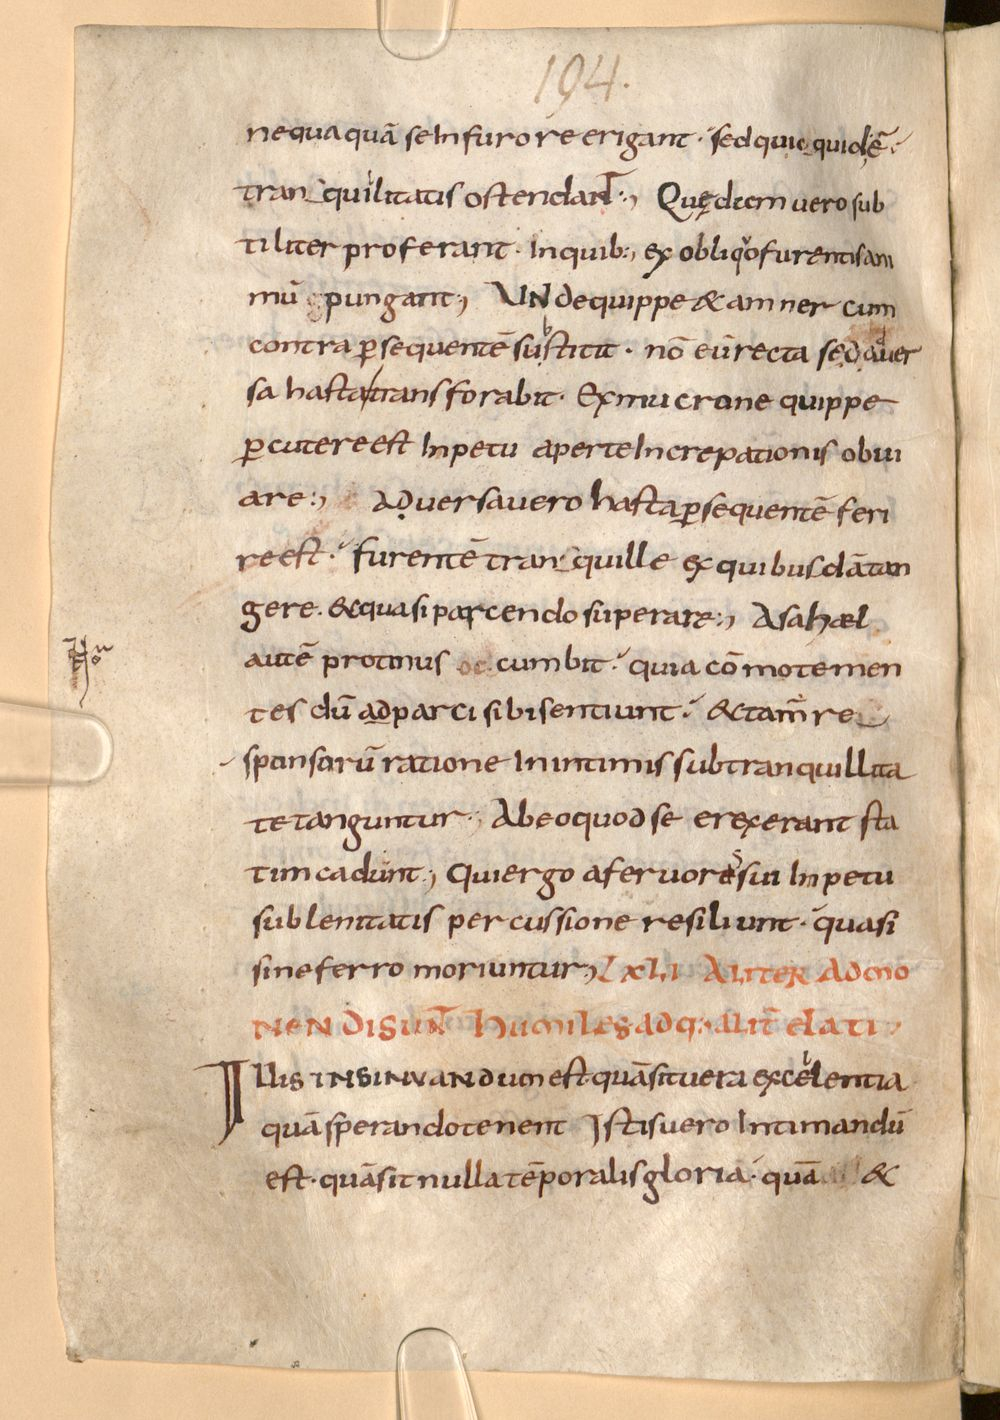 194.
nequaquā se In furore erigant · sed quicquid ē ·
tranquillitatis ostendant ·, Quędam vero sub
tiliter proferant · In quib:, ex obliquo furentis ani
mū pungant, UNde quippe & abner cum
contra ꝑsequentē substitit · nō eū recta sed aver
sa hasta transforabit · Ex mucrone quippe
ꝑcutere est Inpetu aperte Increpationis obvi
are:, Aduersa vero hasta ꝑsequentē feri
re est · furentē tranquille ex quibusdā tan
gere · & quasi parcendo superare:, Asahæl
autē protinus occumbit · quia cōmote men
tes dū ad parci sibi sentiunt · & tam re
sponsorū ratione In intimis sub tranquillita
te tanguntur ·, Ab eo quod se erexerant sta
tim cadunt, Qui ergo a fervoris sui Inpetu
sub lenitatis percussione resiliunt · quasi
sine ferro moriuntur, LXLI ALITER ADmo
NENDI SUNT humiles adq:, alit elati
Illis INSINUANDum est quā sit vera excellentia
quā sperando tenent Istis vero Intimandū
est · quā sit nulla tēporalis gloria · quā &